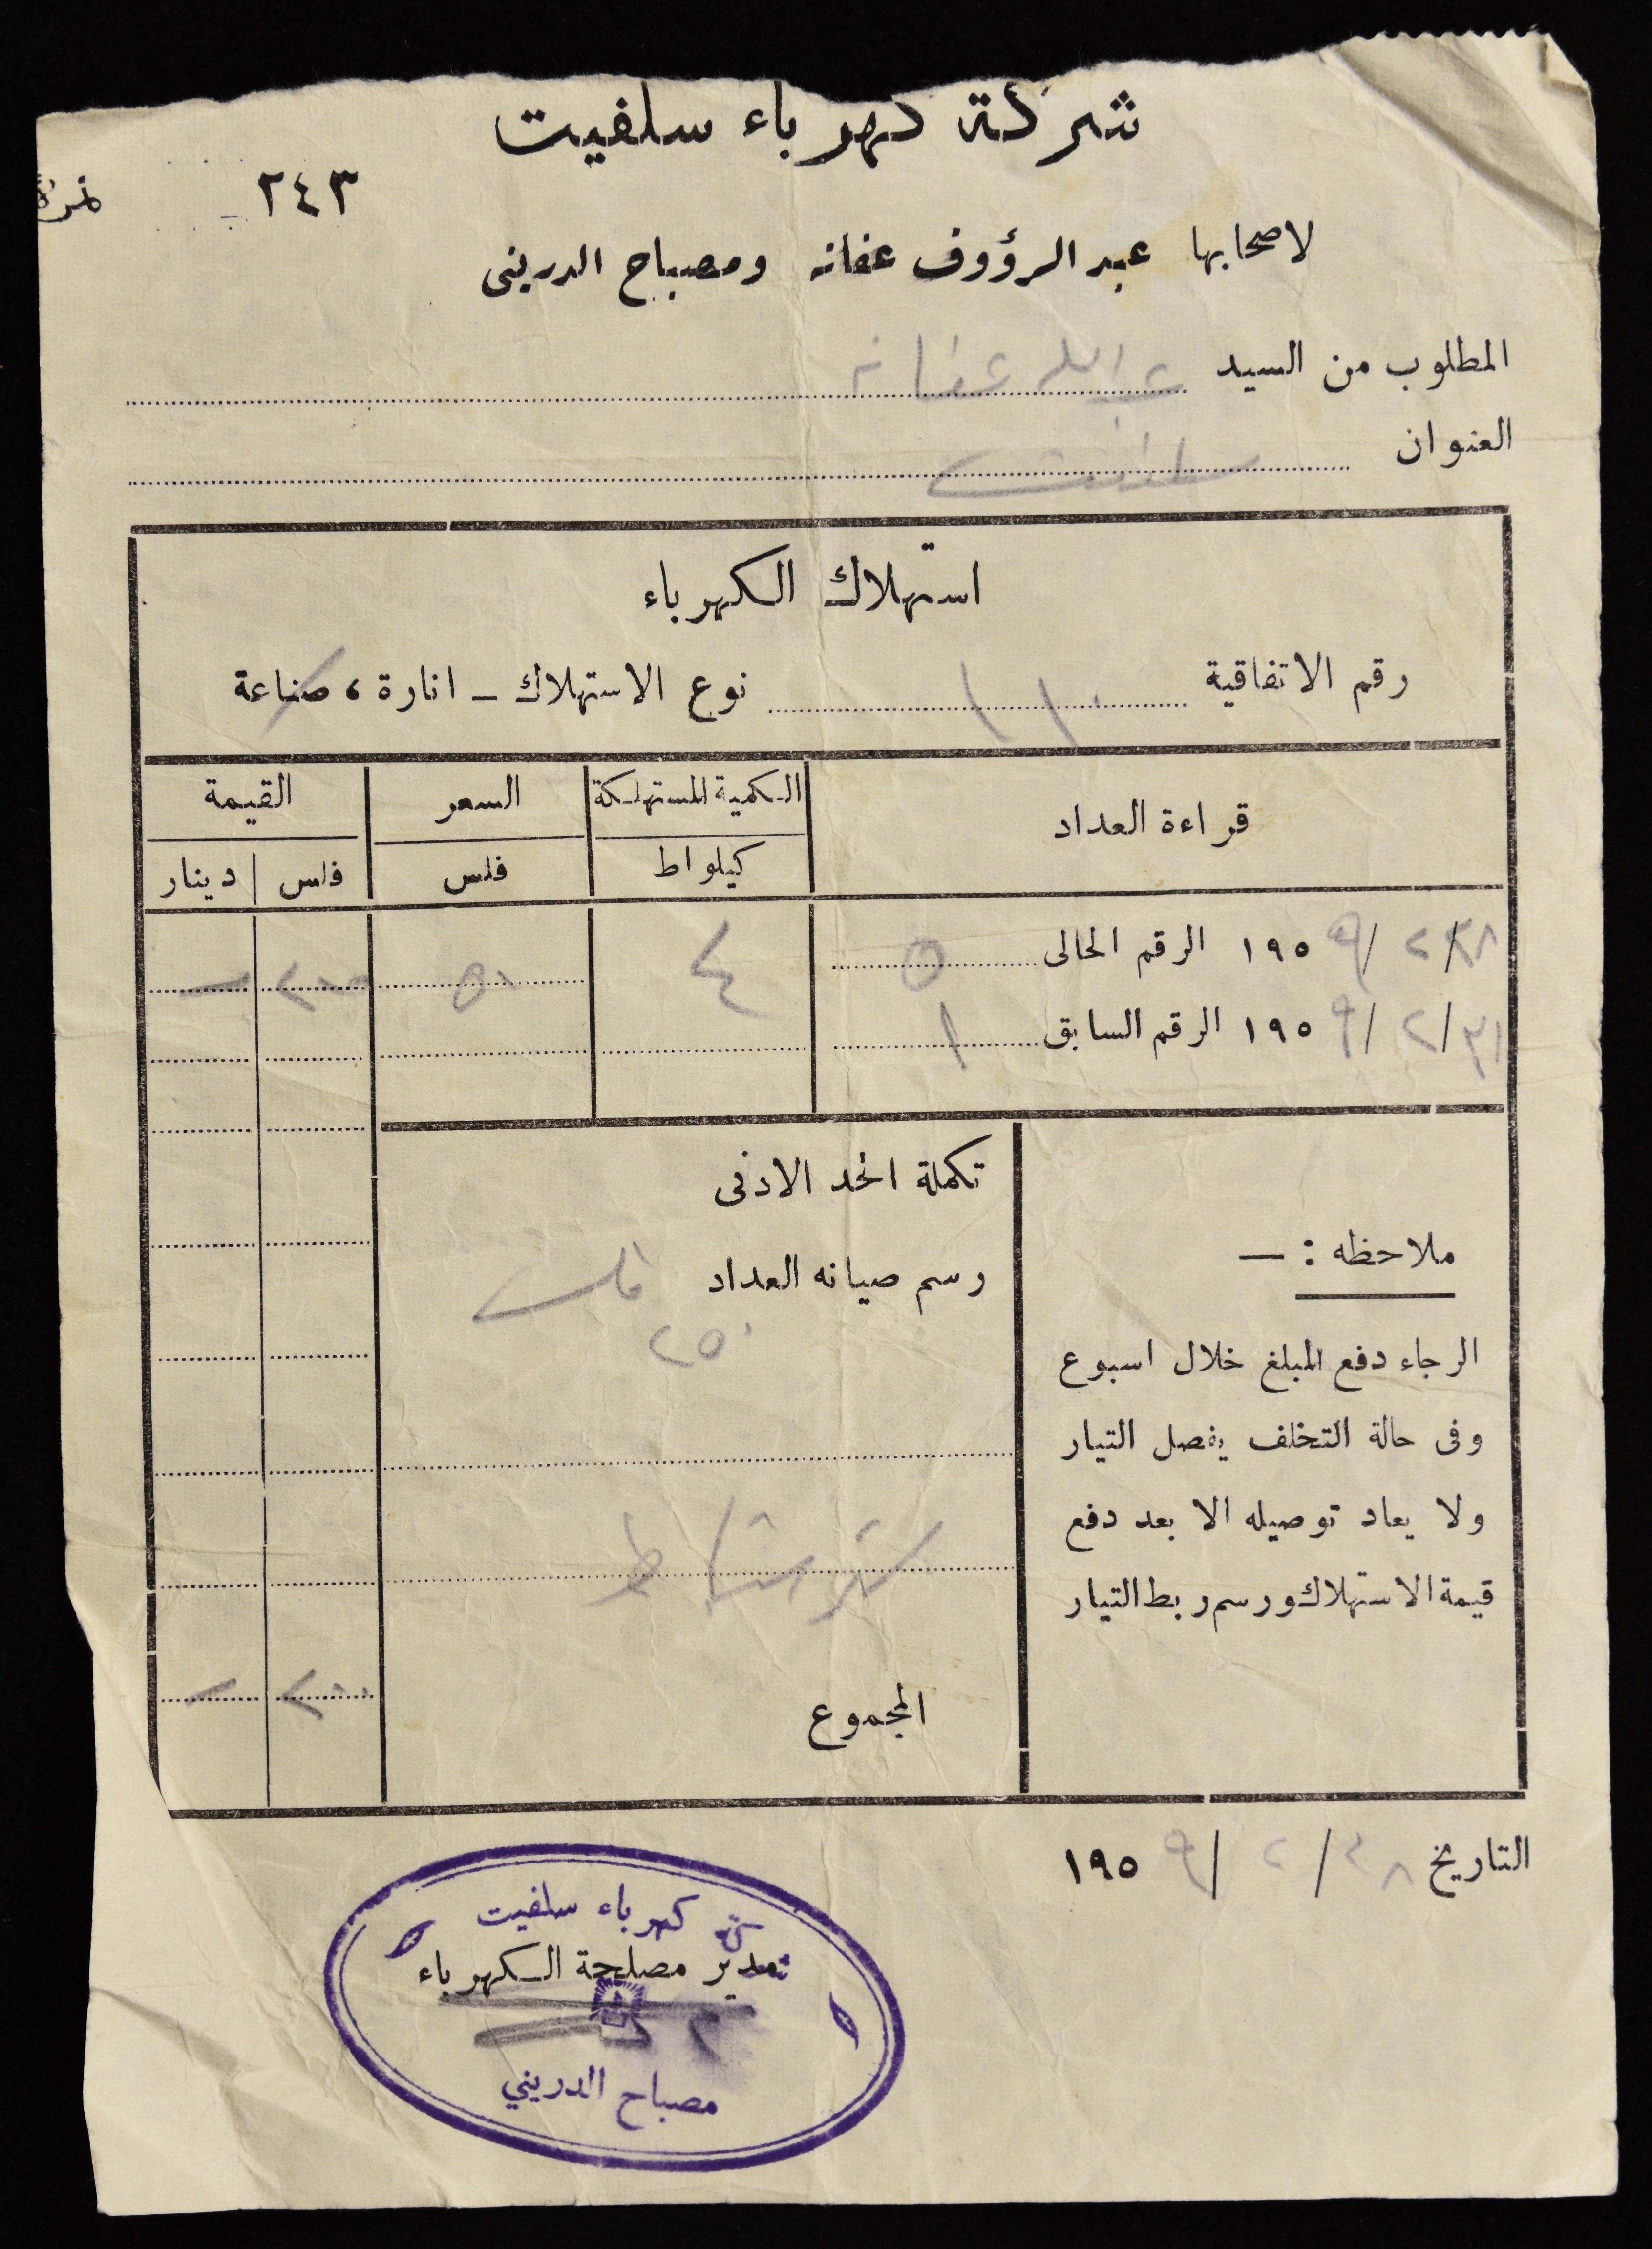 شركة كهرباء سلفيت
نمرة ٢٤٣
لاصحابها عبد الرؤوف عفانه ومصباح الدرينى
المطلوب من السيد عبد الله عفانه
العنوان سلفيت
استهلاك الكهرباء
رقم الاتفاقية ١١٠ نوع الاستهلاك - انارة ، صناعة
قراءة العداد الكمية المستهلكة السعر القيمة
كيلو اط فلس فلس دينار
٢٨/٢/١٩٥٩ الرقم الحالى ٥ ٤ ٥٠ ٢٠٠ -
٣١/٢/١٩٥٩ الرقم السابق ١
تكملة الحد الادنى
رسم صيانه العداد فلس
٢٥٠
ملاحظه : —
الرجاء دفع المبلغ خلال اسبوع
وفى حالة التخلف يفصل التيار
ولا يعاد توصيله الا بعد دفع
قيمة الاستهلاك ورسم ربط التيار
المجموع ٢٠٠ -
التاريخ ٢٨/٢/١٩٥٩
شركة كهرباء سلفيت
مدير مصلحة الكهرباء
مصباح الدريني